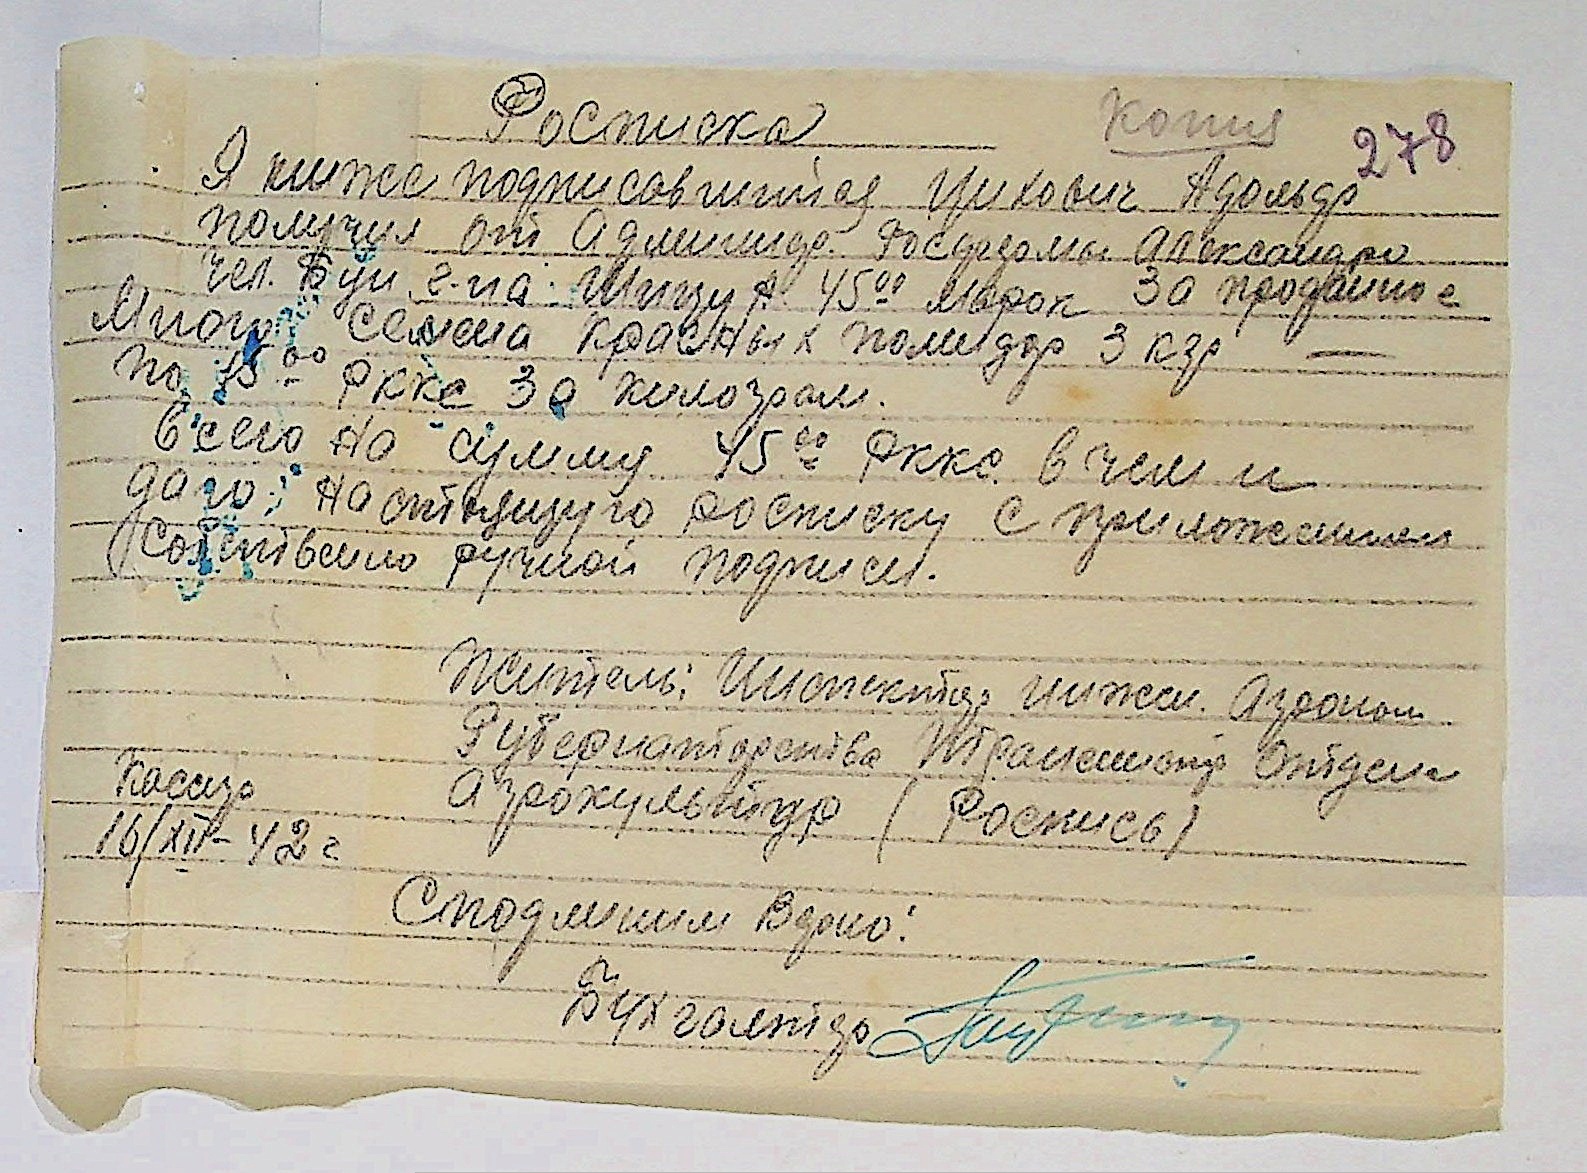 Росписка Копия 278
Я ниже подписавшийся Цихович Адольф
получил от Админир. Госфермы Александро
чел. Буи г-на Шицу А. 45⁰⁰ марок за проданное
Мною семена красных помидор 3 кгр —
по 15⁰⁰ Ркке за килограм.
Всего на сумму 45⁰⁰ Ркке. в чем и
даю настоящую росписку с приложением
собственно ручной подписи.
Житель: Инспектор инжен. Агроном
Губернаторства Отдел
Кассир Агрокультур (Роспись)
16/XII-42 г
Сподлиним верно:
Бухгалтер